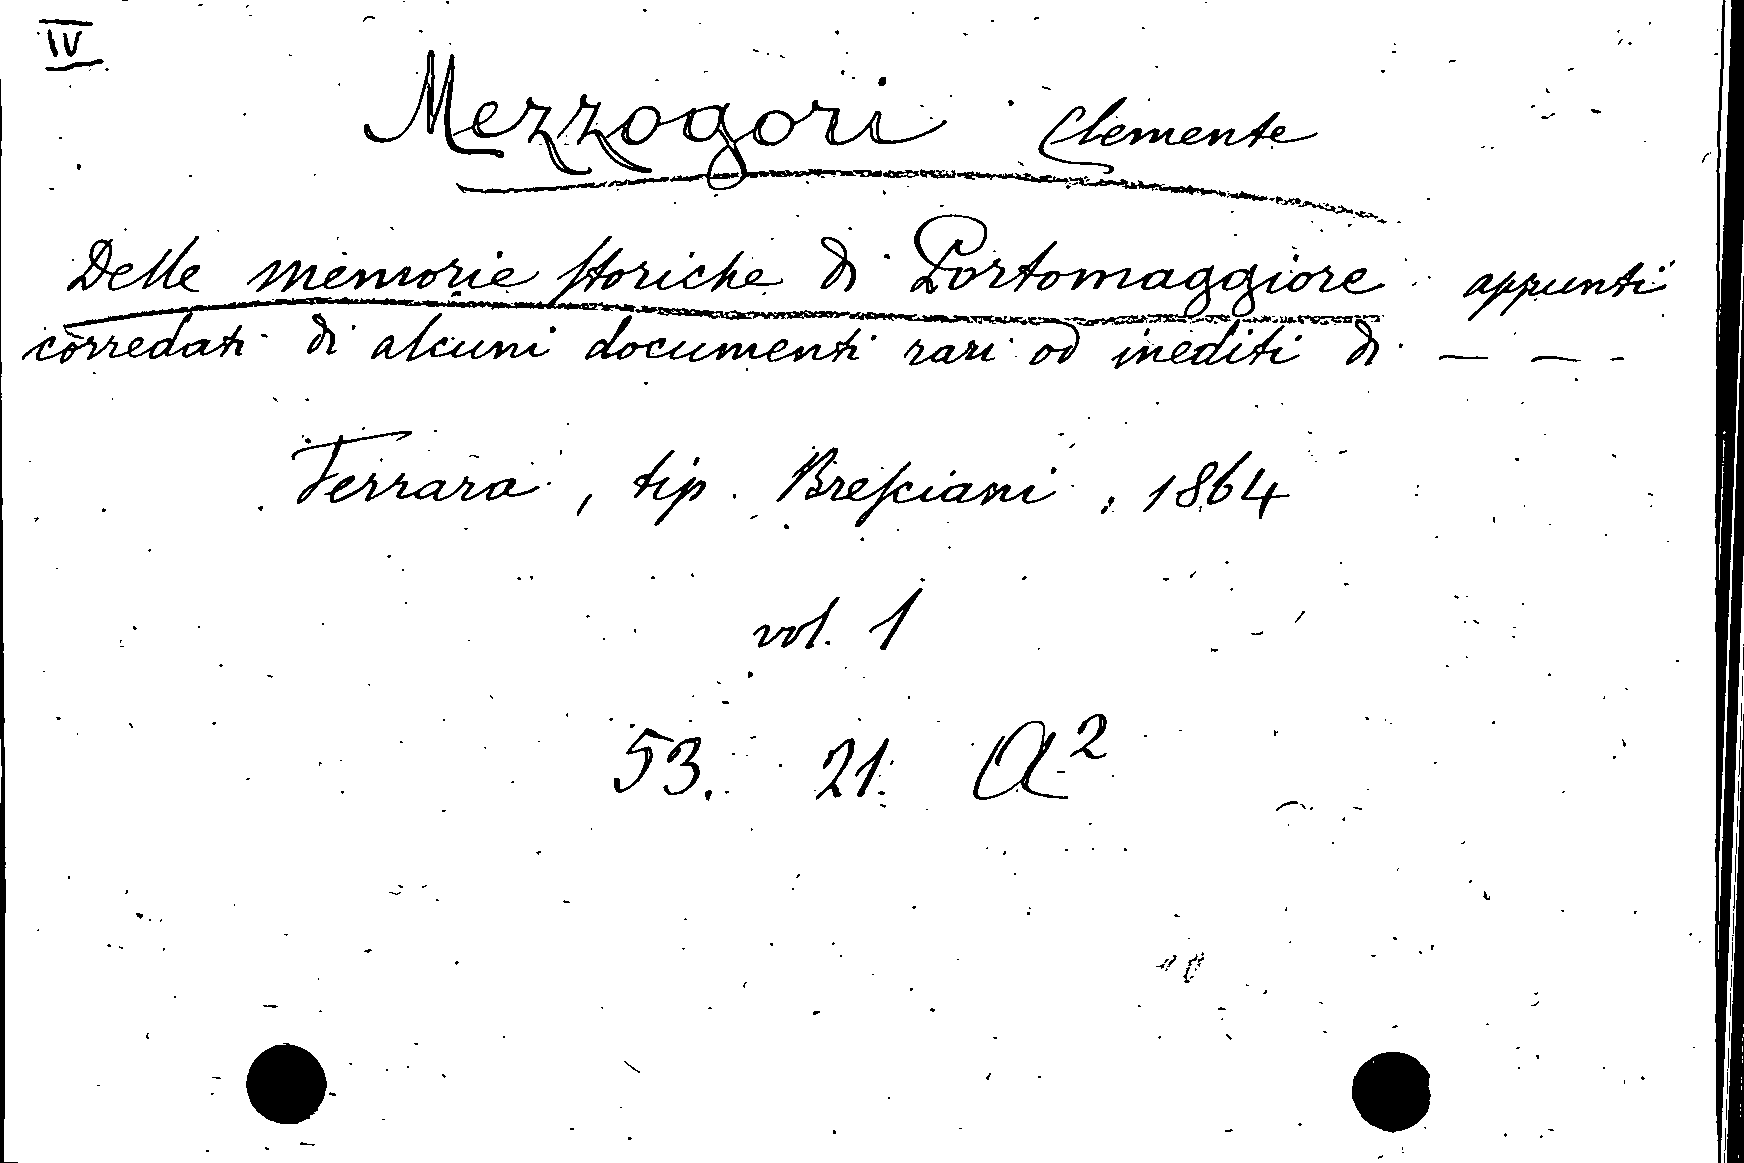 IV
Mezzogori Clemente
Delle memorie storiche di Portomaggiore appunti
corredati di alcuni documenti rari od inediti di — — -
Ferrara, tip. Bresciani, 1864
vol. 1
53. 21. A²